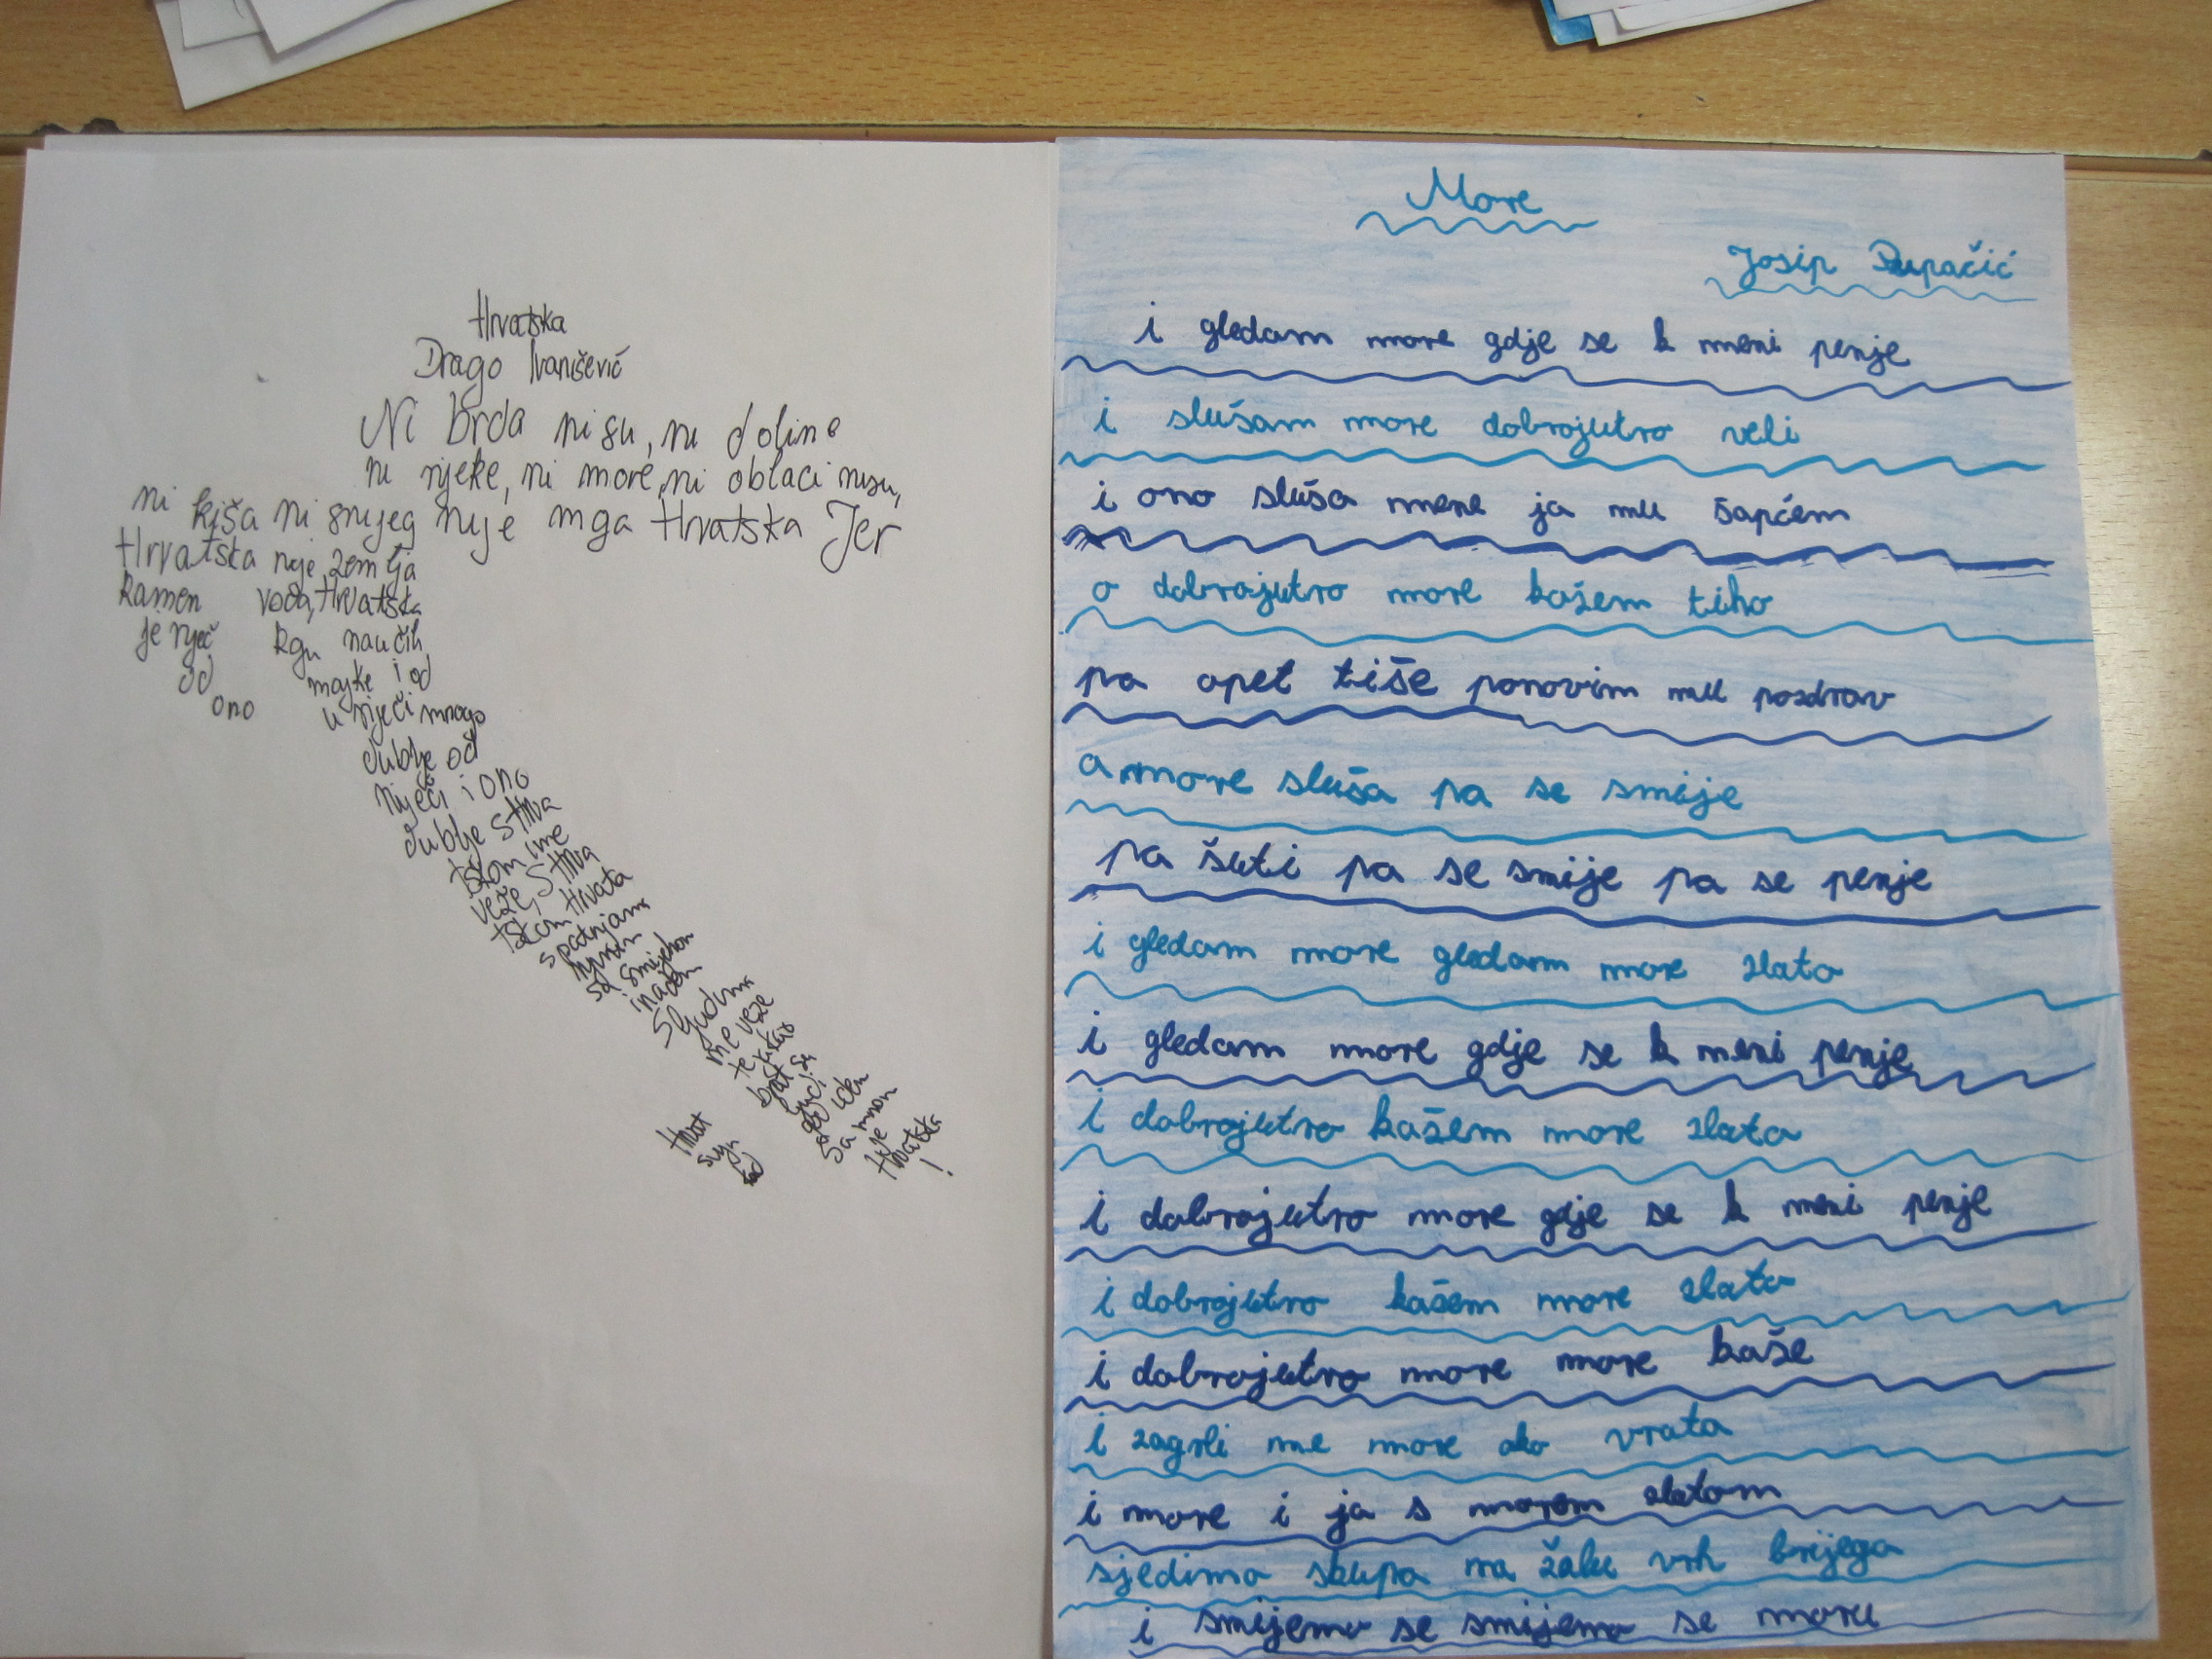 Hrvatska
Drago Ivanišević
Ni brda nisu, ni doline
ni rijeke, ni more, ni oblaci nisu,
ni kiša ni snijeg nije moja Hrvatska Jer
Hrvatska nije zemlja
kamen voda, Hrvatska
je riječ koju naučih
od majke i od
ono u riječi mnogo
dublje od
riječi i ono
dublje s Hrva
tskom me
veže, s Hrva
tskom Hrvata
s patnjama
njinim
sa smijehom
i nadom
s ljudima
me veže
te kakav
brat sa
ljudi
Hrvat
svoju
kad
sa mnom
Hrvatska
!
More
Josip Pupačić
i gledam more gdje se k meni penje
i slušam more dobrojutro veli
i ono sluša mene ja mu šapćem
o dobrojutro more kažem tiho
pa opet tiše ponovim mu pozdrav
a more sluša pa se smije
pa šuti pa se smije pa se penje
i gledam more gledam more zlato
i gledam more gdje se k meni penje
i dobrojutro kažem more zlato
i dobrojutro more gdje se k meni penje
i dobrojutro kažem more zlato
i dobrojutro more more kaše
i zagrli me more oko vrata
i more i ja s morem zlatom
sjedimo skupa na žalu vrh brijega
i smijemo se smijemo se moru